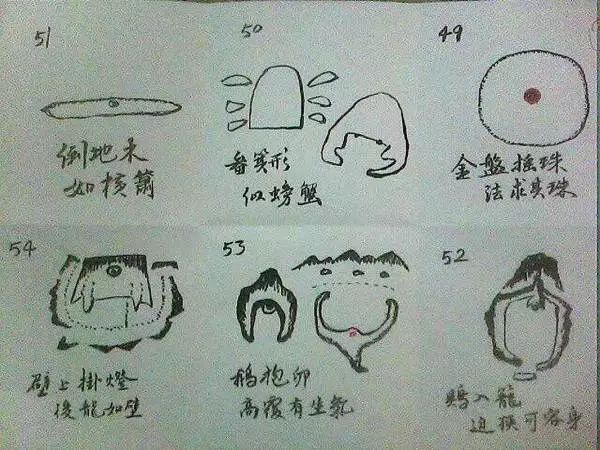 51
倒地木
如橫簫
50
畚箕形
似螃蟹
49
金盤搖珠
法求其珠
54
壁上掛燈
後龍如壁
53
鵝抱卵
高覆有生氣
52
鷄入籠
迫狹可容身